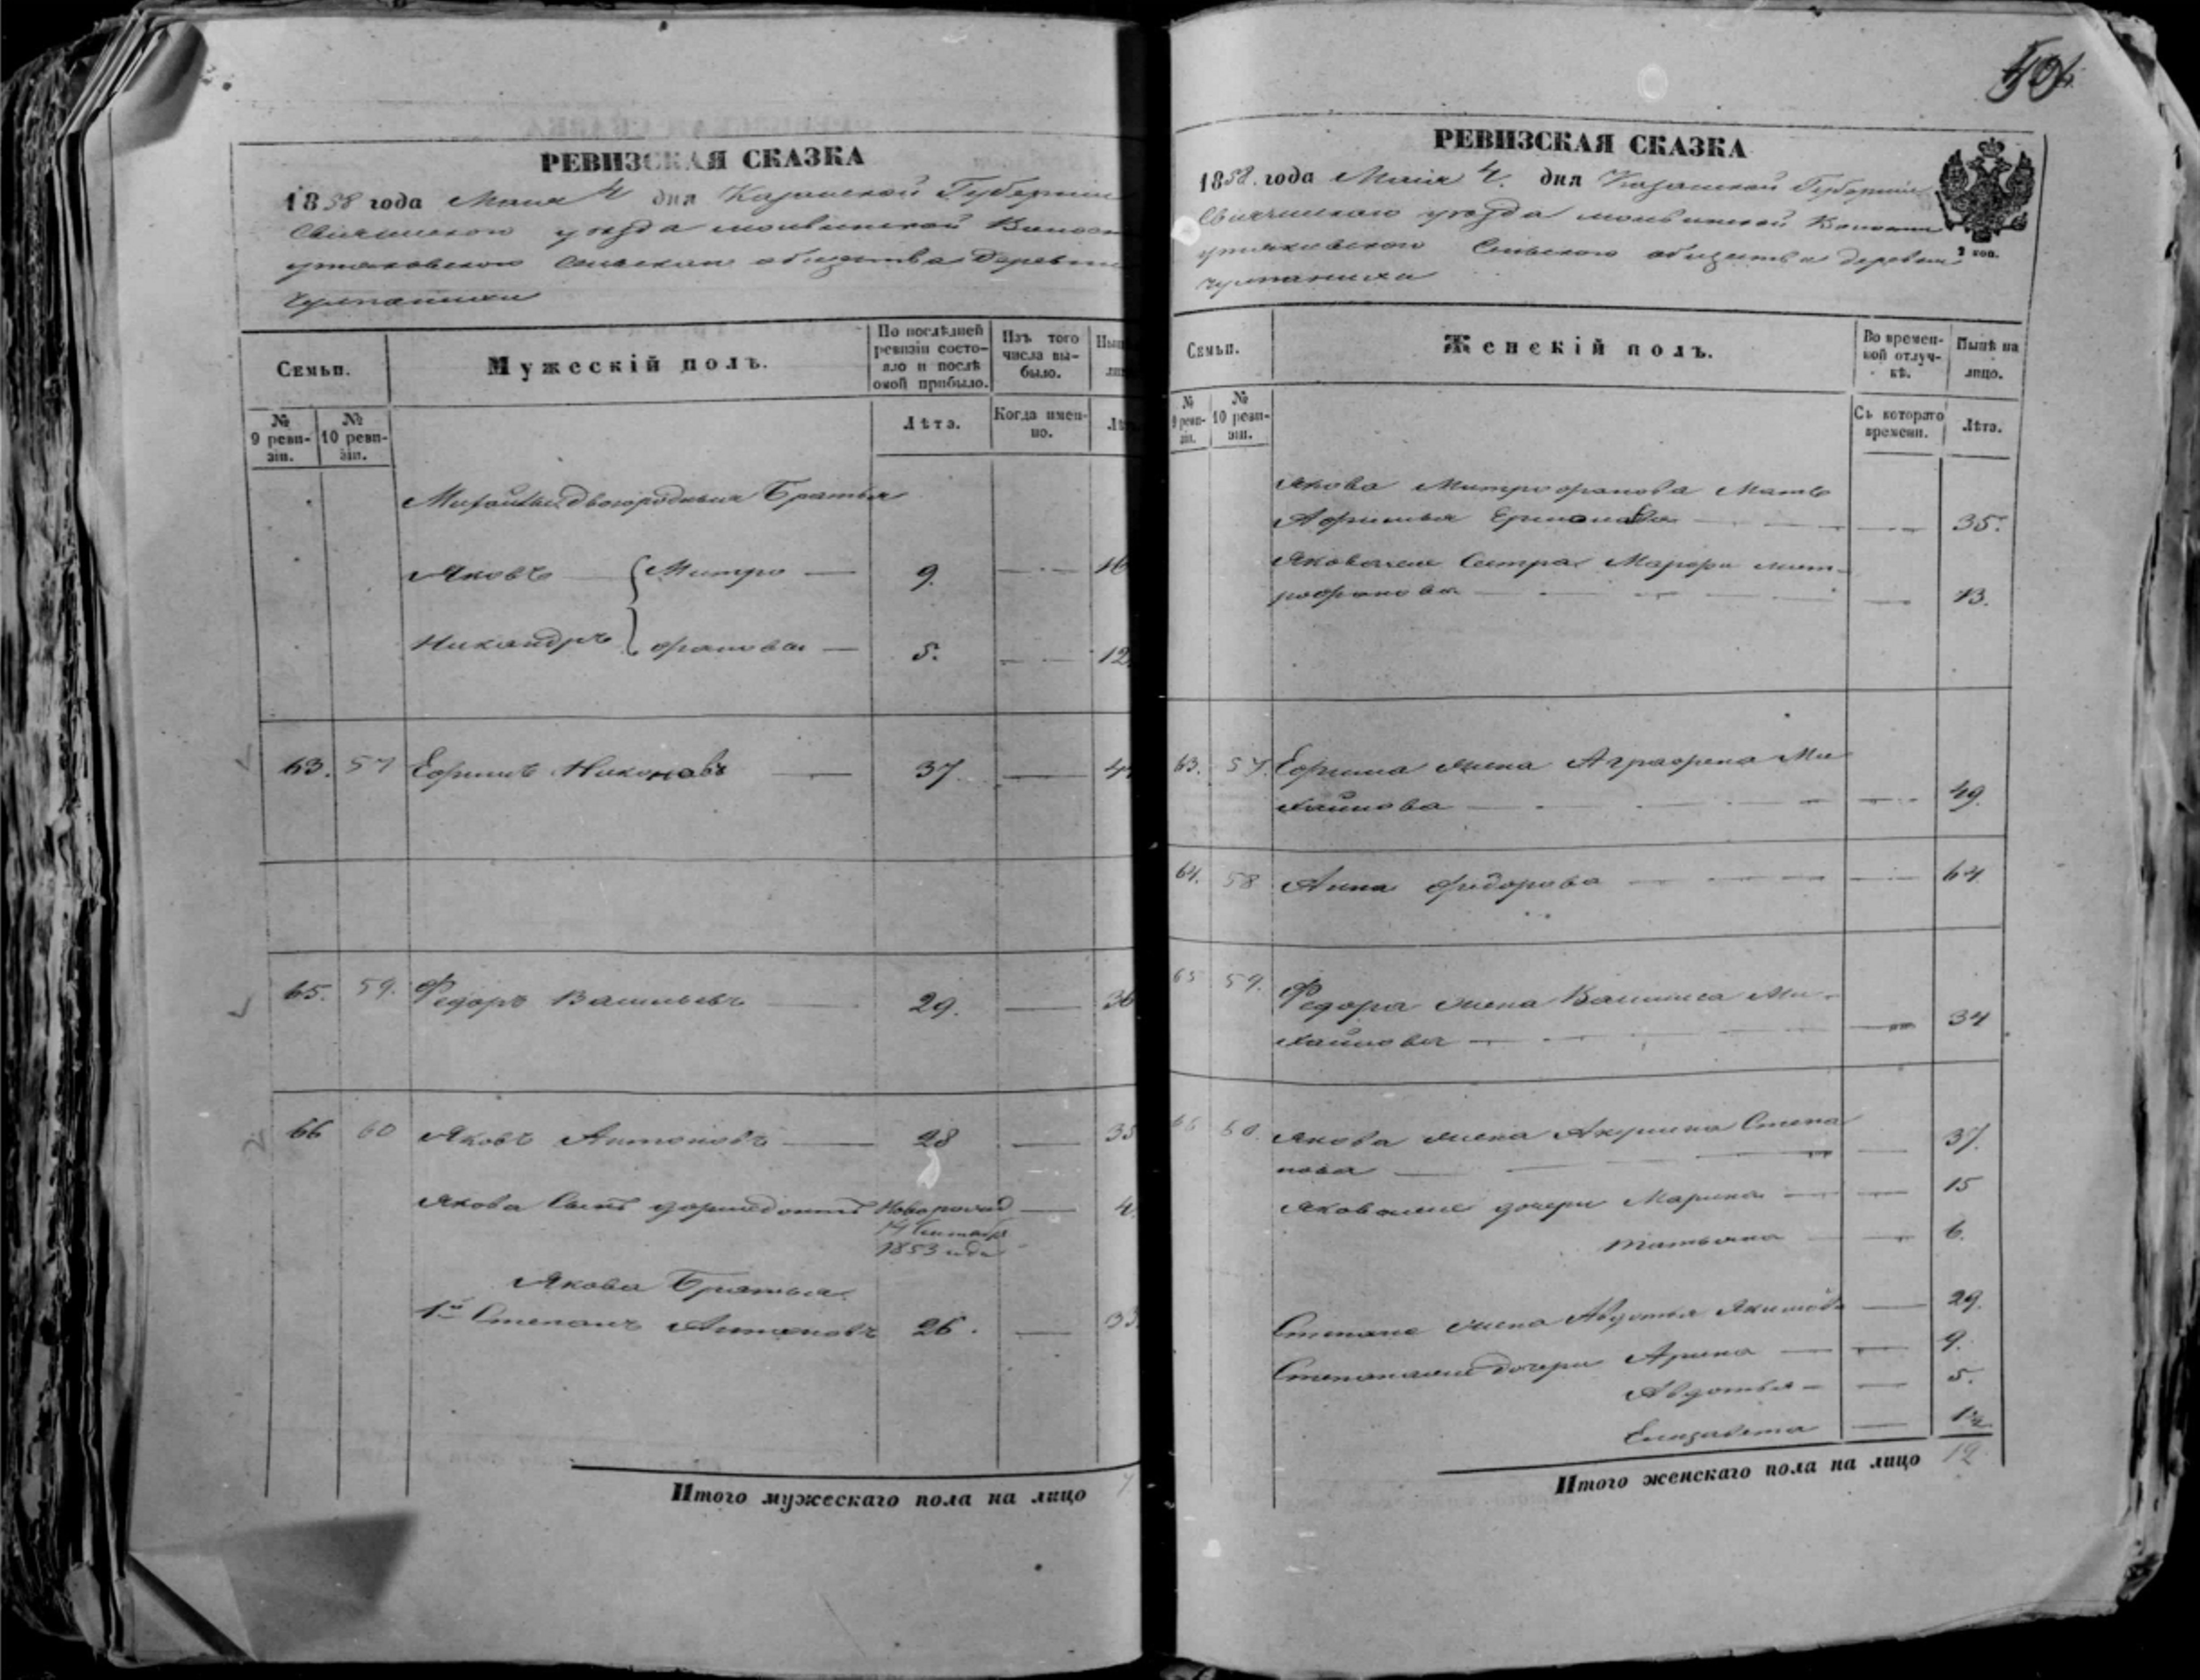 РЕВИЗСКАЯ СКАЗКА
1858 года Маия 4 дня Казанской Губернии
Свияжскаго уезда Волост
Сельскаго общества Деревни
Семьи.
Мужескій полъ.
По послѣдней ревизіи состояло и послѣ оной прибыло.
Изъ того числа выбыло.
№ 9 ревизіи.
№ 10 ревизіи.
Лѣта.
Когда именно.
двоюродныя Братья
Яковъ — Митро — 9. —
Никандръ фановы — 5. — 12
63. 57 Ефимъ Никоновъ — 37 —
65. 59. Федоръ Васильевъ — 29. —
66 60 Яковъ Антоновъ — 28 —
Якова Сынъ Новорожд — 4
14 Сентябр
1853 года
Якова Братья
1й Степанъ Антоновъ 26. —
Итого мужескаго пола на лицо
РЕВИЗСКАЯ СКАЗКА
1858 года Маия 4 дня Казанской Губерніи
Свияжскаго уезда Волости
Сельскаго общества деревни
2 коп.
Семьи.
Женскій полъ.
Во временной отлучкѣ.
Нынѣ на лицо.
№ 9 ревизіи.
№ 10 ревизіи.
Съ котораго времени.
Лѣта.
Якова Митрофанова Мать
— 35.
Яковлева Сестра Марфа мит-
рофанова — 13.
63. 57. Ефима жена Аграфена Ми
хайлова — 49.
64. 58 Анна Федорова — 64
65 59. Федора жена Василиса Ми-
хайлова — 34
66 60. Якова жена Акулина Степа
нова — 37.
дочери Марина — 15
Татьяна — 6.
Степана жена Авдотья Якимова — 29.
дочери Арина — 9.
Авдотья — 5.
Елизавета — 1½
Итого женскаго пола на лицо 12